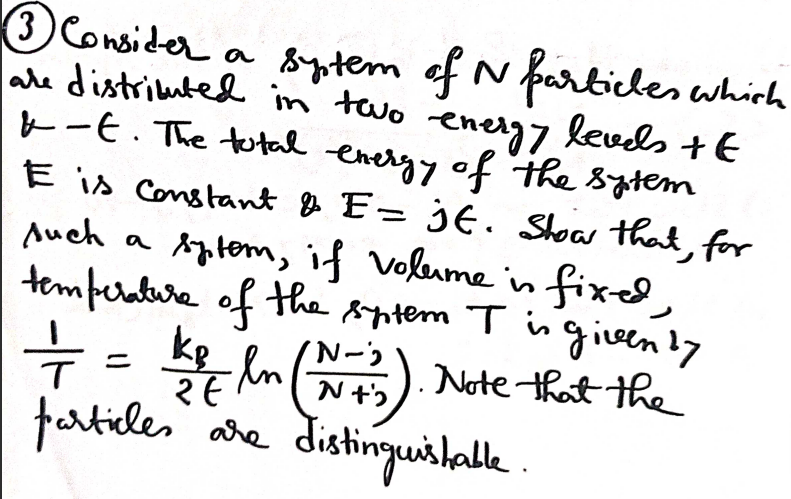 ③ Consider a system of N particles which
are distributed in two energy levels +ϵ
& -ϵ. The total energy of the system
E is constant & E = jϵ. Show that, for
such a system, if volume is fixed,
temperature of the system T is given by
1/T = k_B/2ϵ ln (N-j/N+j). Note that the
particles are distinguishable.